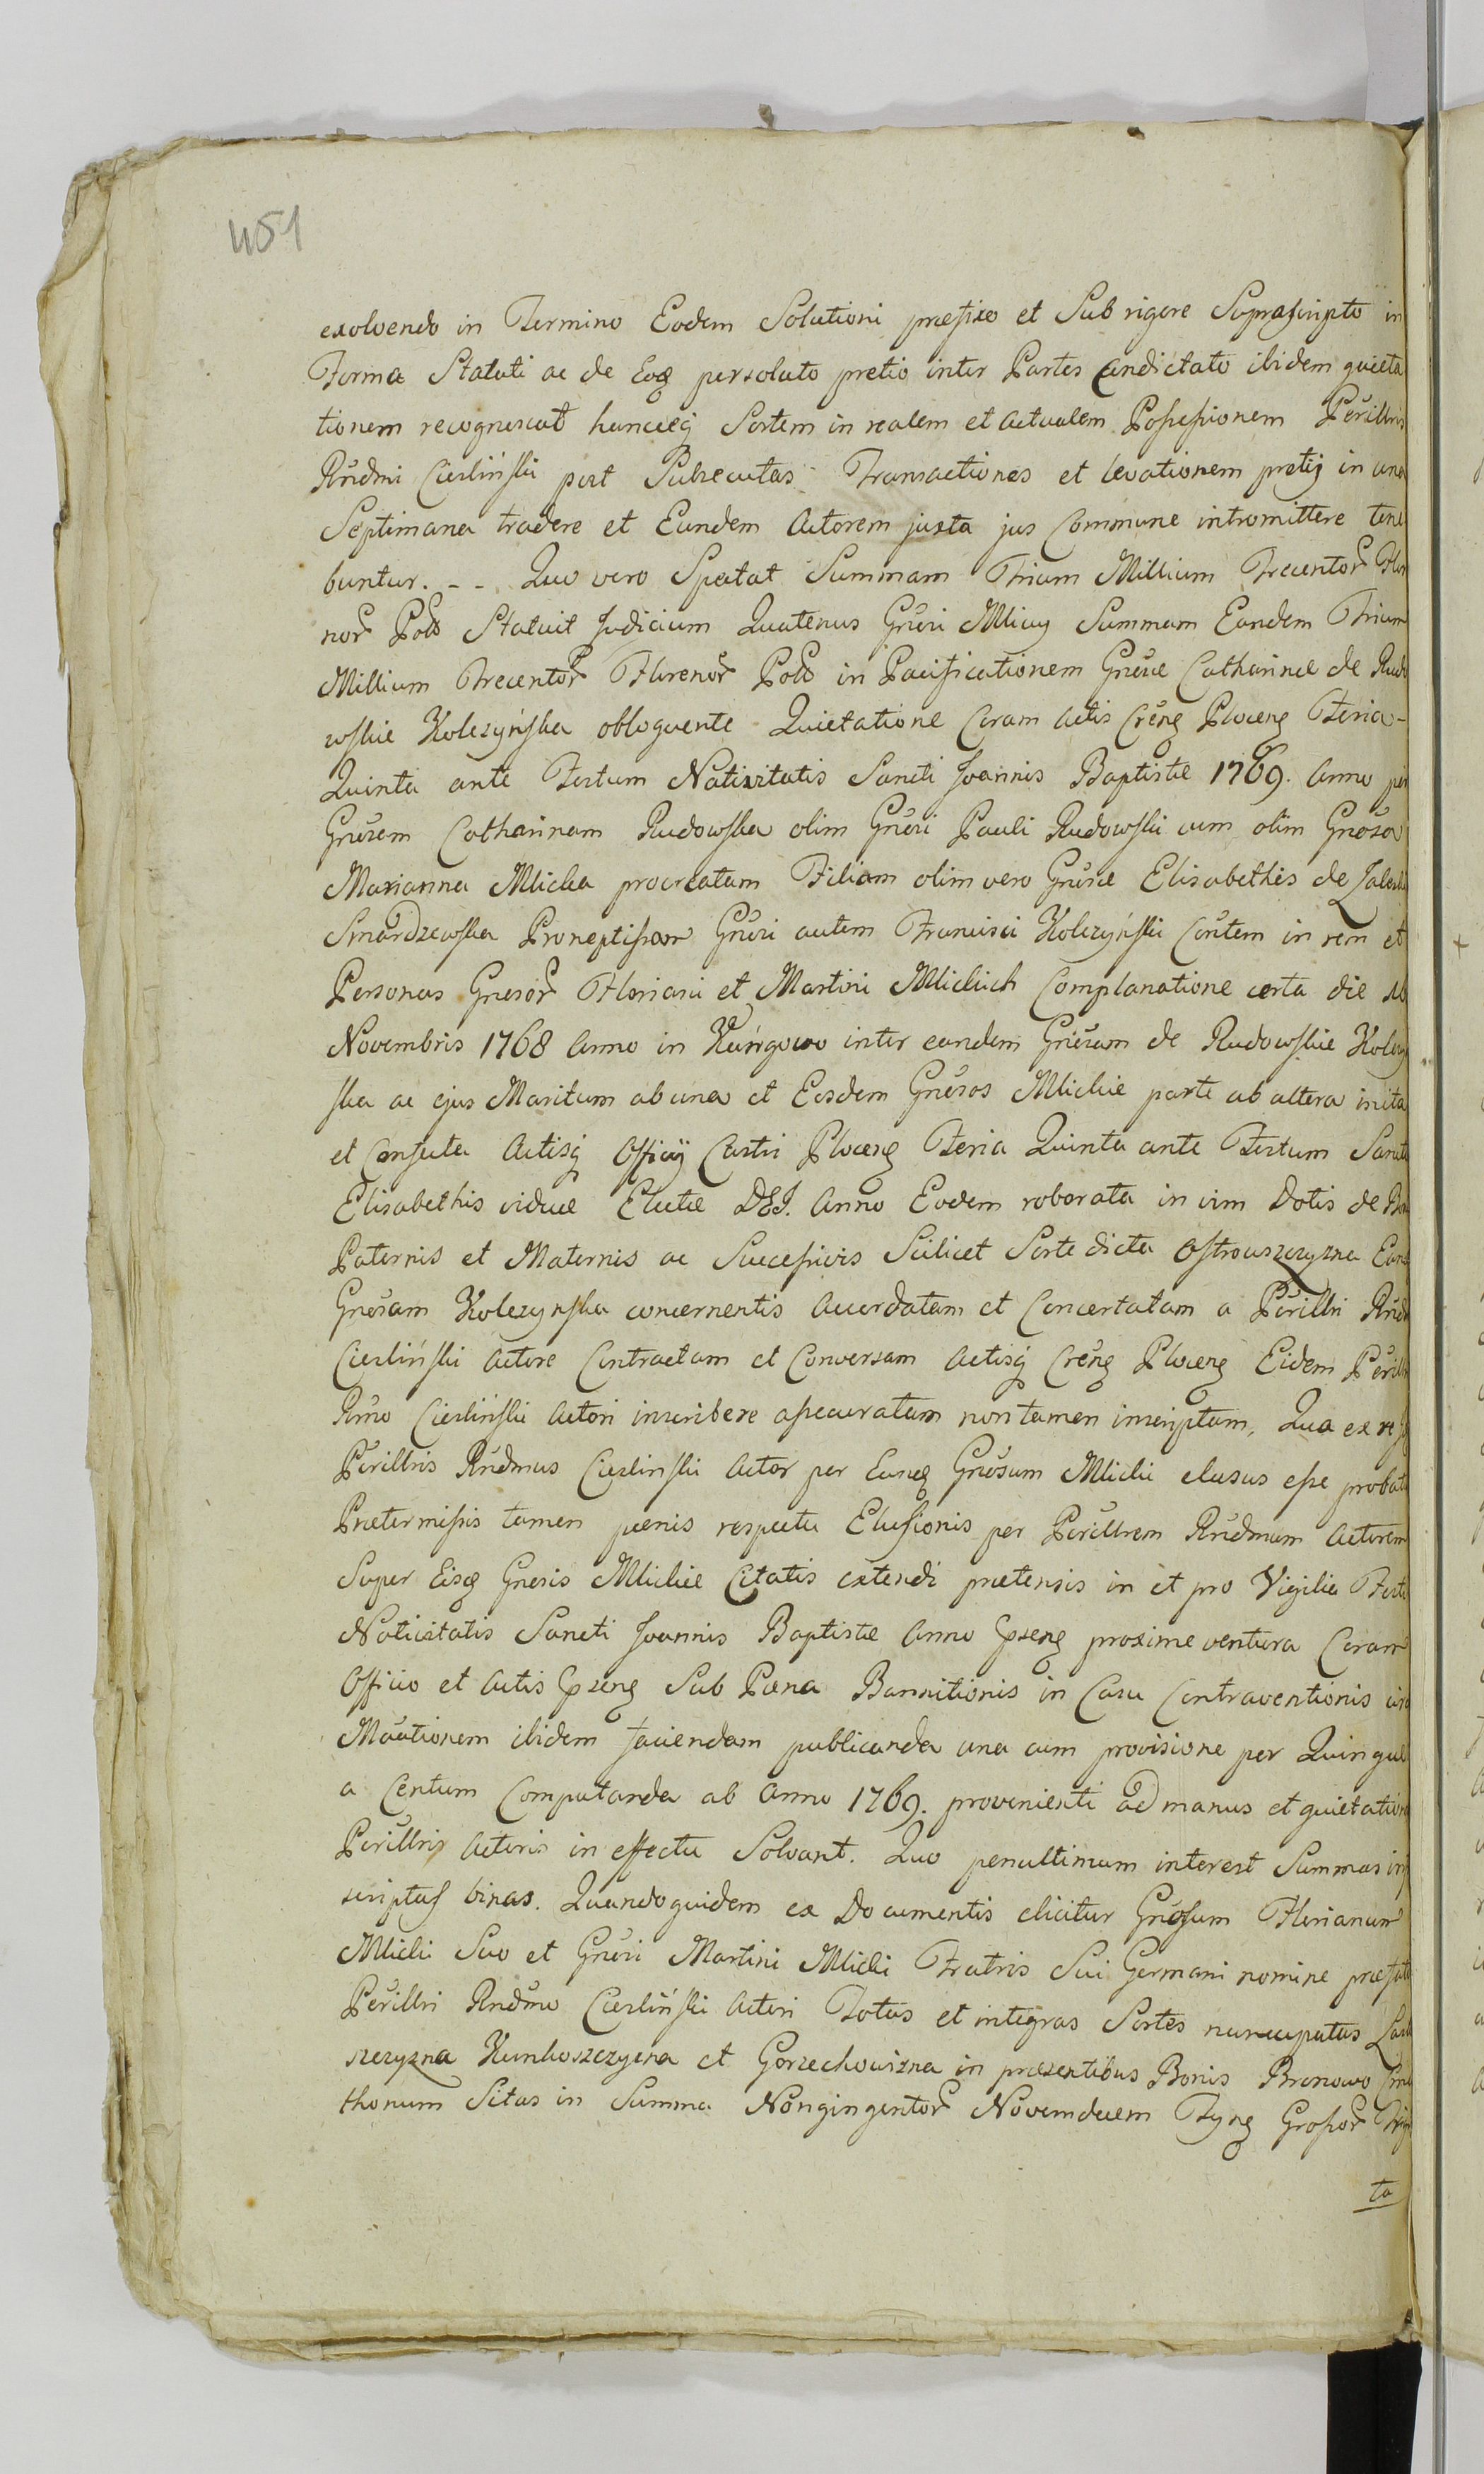 451
exolvendo in Termino Eodem Solutioni præfixo et Sub rigore Suprascripto in
Forma Statuti ac de Eoq persoluto pretio inter Partes condictato ibidem quieta
tionem recognoscat hancceq Sortem in realem et actualem Possessionem Perillris
Rndmi Cieslinski post Subsecutas Transactiones et levationem pretij in una
Septimana tradere et Eundem Actorem juxta jus Commune intromittere tene
buntur. - - Quo vero Spectat Summam Trium Millium Trecentor Flor
nor Poll Statuit Judicium Quatenus Gnosi Mliccy Summam Eandem Trium
Millium Trecentor Florenor Poll in Pacificationem Gnosæ Catharinæ de Rudo
wskie Kolczyńska obloquente Quietatione Coram Actis Creng Ploceng Feria
Quinta ante Festum Nativitatis Sancti Joannis Baptistæ 1769. Anno per
Gnosam Catharinam Rudowska olim Gnosi Pauli Rudowski cum olim Gnosa
Marianna Mlicka procreatam Filiam olim vero Gnosæ Elisabethis de
Smardzewska Proneptissam Gnosi autem Francisci Kolczyński Contem in rem et
Personas Gnosor Floriani et Martini Mlickich Complanatione certa die
Novembris 1768 Anno in inter eandem Gnosam de Rudowskie Kolczy
ska ac ejus Maritum ab una et Eosdem Gnosos Mlickie parte ab altera inita
et Confecta Actisq Officij Castri Plocens Feria Quinta ante Festum Sanctæ
Elisabethis viduæ Electæ DEI. Anno Eodem roborata in vim Dotis de Bo
Paternis et Maternis ac Successivis Scilicet Sorte dicta Ostrowszczyzna Ean
Gnosam Kolczynska concernentis Accordatam et Concertatam a Perillri Rnd
Cieslinski Actore Contractam et Conversam Actisq Creng Plocens Eidem Perill
Rmo Cieslinski Actori inscribere assecuratam non tamen inscriptam, Qua ex re
Perillris Rndmus Cieslinski Actor per Eunq Gnosum Mlicki elusus esse probat
Prætermissis tamen pænis respectu Elusionis per Perillrem Rndmum Actorem
Super Eisq Gnosis Mlickie Citatis extendi prætensis in et pro Vigilia Festi
Nativitatis Sancti Joannis Baptistæ Anno proxime ventura Coram
Officio et Actis Sub Pæna Bannitionis in Casu Contraventionis
ibidem faciendam publicanda una cum provisione per Quinque
a Centum Computanda ab Anno 1769. provenienti ad manus et quietation
Perillris Actoris in effectu Solvant. Quo penultimum interest Summas in
scriptas binas. Quandoquidem ex Documentis elicitur Gnosum Florianum
Mlicki Suo et Gnosi Martini Mlicki Fratris Sui Germani nomine præfato
Perillri Rndmo Cieslinski Actori Totas et integras Sortes nuncupatas
szczyzna Kunkoszczyzna et Gorzechowizna in præsentibus Bonis Bronowo Cme
thonum Sitas in Summa Nongingentor Novemdecem Tynf Grossor Trigin
ta